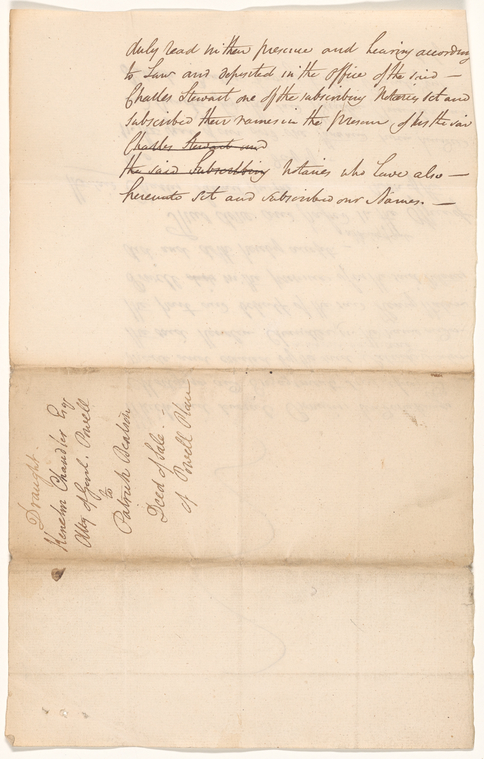 duly read in their presence and hearing according
to Law and deposited in the office of the said —
Charles Stewart one of the subscribing Notaries set and
subscribed their names in the presence of us the said
Charles Stewart and
the said Subscribing Notaries who have also —
hereunto set and subscribed our Names. —
Draught.
Kenelm Chandler Esq
Atty of Genl. Powell
to
Patrick Beatson
Deed of Sale
of Powell Place